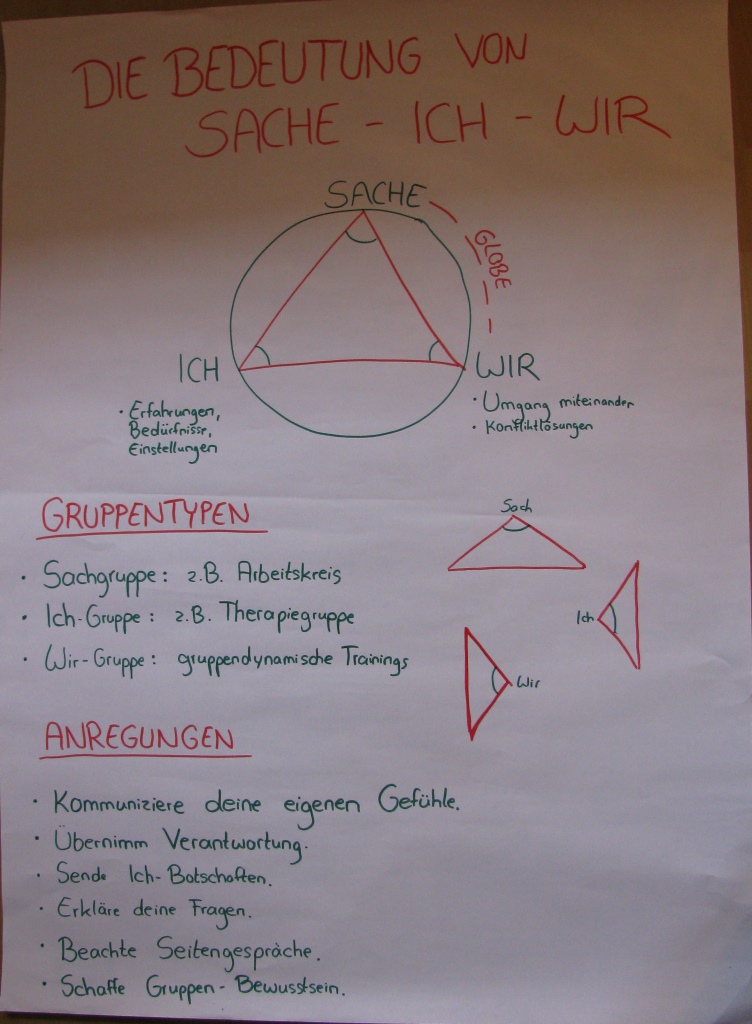 DIE BEDEUTUNG VON
SACHE - ICH - WIR
SACHE
GLOBE
ICH
WIR
• Erfahrungen,
Bedürfnisse,
Einstellungen
• Umgang miteinander
• Konfliktlösungen
GRUPPENTYPEN
• Sachgruppe: z.B. Arbeitskreis
• Ich-Gruppe: z.B. Therapiegruppe
• Wir-Gruppe: gruppendynamische Trainings
Sach
Ich
Wir
ANREGUNGEN
• Kommuniziere deine eigenen Gefühle.
• Übernimm Verantwortung.
• Sende Ich-Botschaften.
• Erkläre deine Fragen.
• Beachte Seitengespräche.
• Schaffe Gruppen-Bewusstsein.